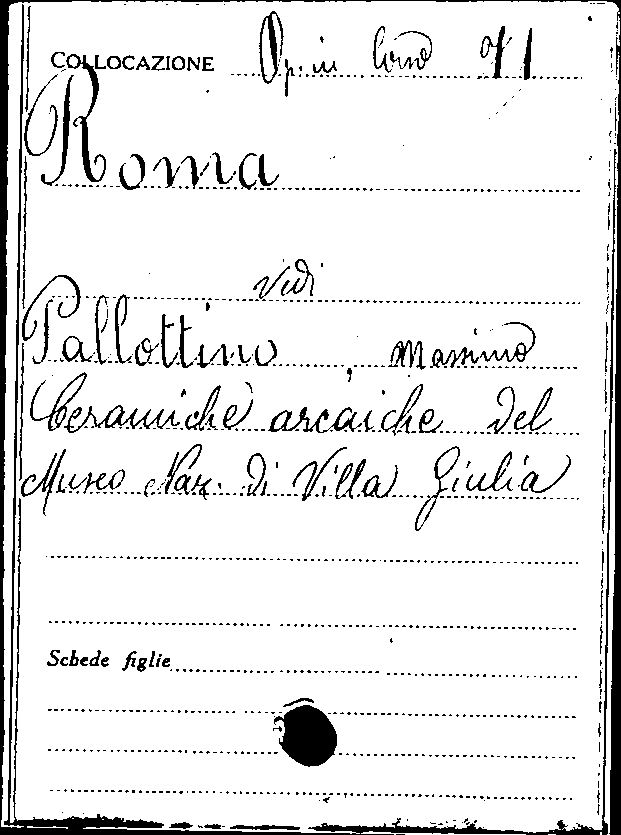 COLLOCAZIONE Op. in
Roma
Vedi
Pallottino, Massimo
Ceramiche arcaiche del
Museo Naz. di Villa Giulia
Schede figlie